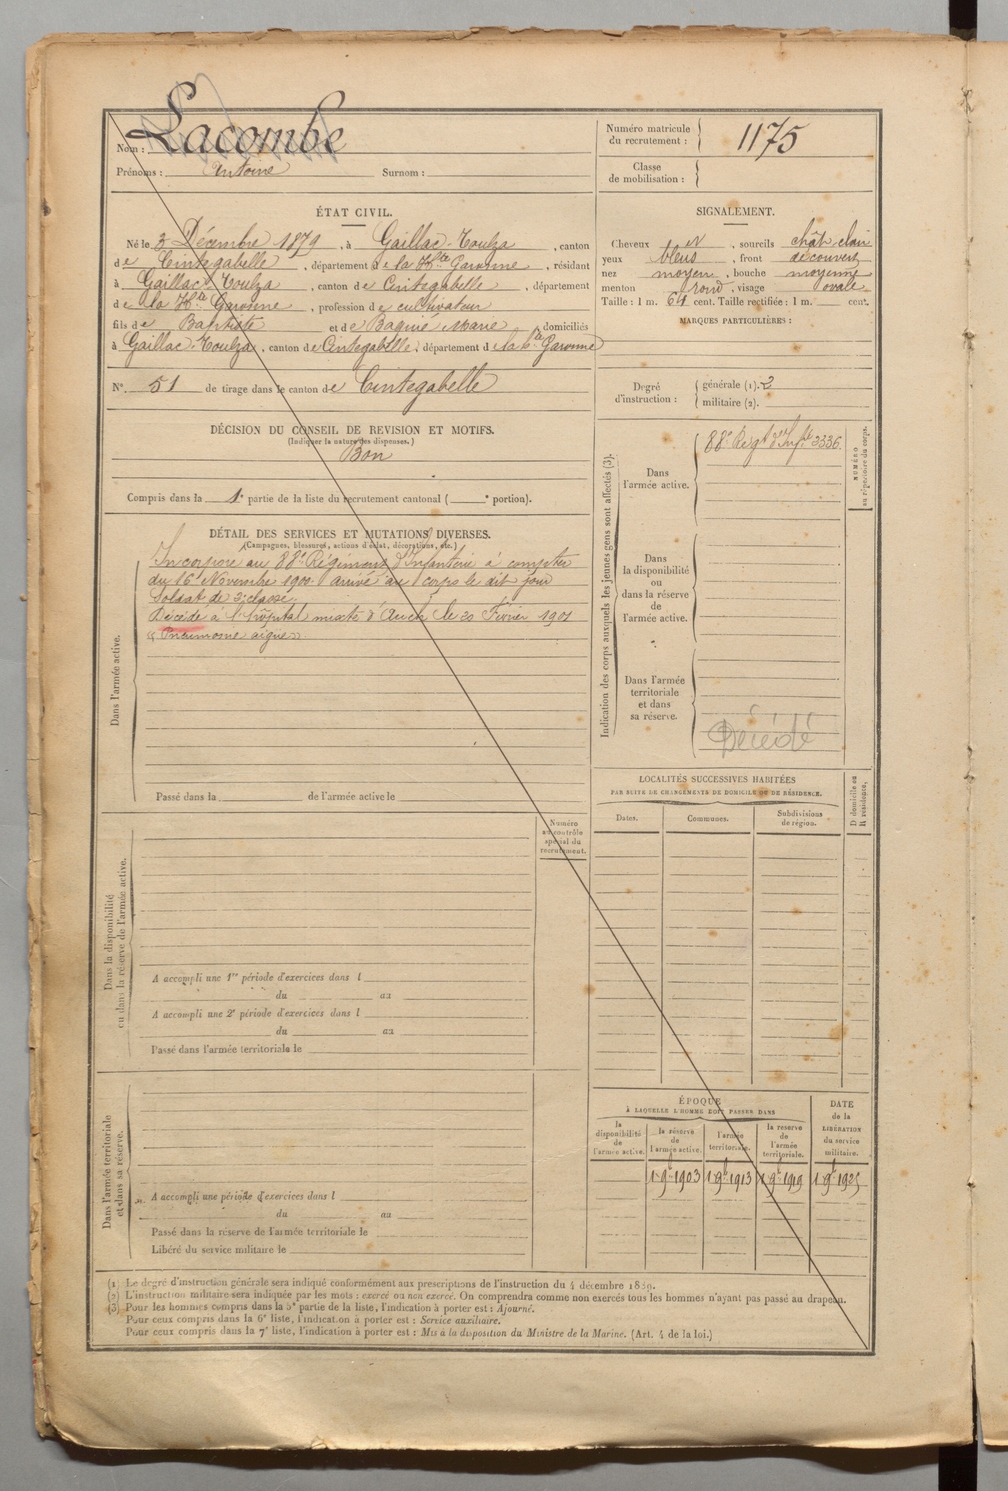 Nom : Lacombe
Prénoms : Antoine Surnom :
Numéro matricule du recrutement : 1175
Classe de mobilisation :
ÉTAT CIVIL.
Né le 3 Décembre 1879, à Gaillac-Toulza, canton
de Cintegabelle, département de la Hte Garonne, résidant
à Gaillac-Toulza, canton de Cintegabelle, département
de la Hte Garonne, profession de cultivateur
fils de Baptiste et de Baquié Marie, domiciliés
à Gaillac-Toulza, canton de Cintegabelle, département de la Hte Garonne
N° 51 de tirage dans le canton de Cintegabelle
SIGNALEMENT.
Cheveux et, sourcils chât-clair
yeux bleus, front découvert
nez moyen, bouche moyenne
menton rond, visage ovale
Taille : 1 m. 64 cent. Taille rectifiée : 1 m. cent.
MARQUES PARTICULIÈRES :
Degré d'instruction : générale (1). 2
militaire (2).
DÉCISION DU CONSEIL DE REVISION ET MOTIFS.
(Indiquer la nature des dispenses.)
Bon
Compris dans la 1e partie de la liste du recrutement cantonal ( e portion).
DÉTAIL DES SERVICES ET MUTATIONS DIVERSES.
(Campagnes, blessures, actions d'éclat, décorations, etc.)
Dans l'armée active.
Incorporé au 88e Régiment d'Infanterie à compter
du 16 Novembre 1900 arrivé au corps le dit jour
Soldat de 2e classe.
Décédé à l'hôpital mixte d'Auch le 20 Février 1901
"Pneumonie aigue"
Passé dans la de l'armée active le
Indication des corps auxquels les jeunes gens sont affectés (3).
Dans l'armée active.
88e Regt d'Infie 3336
NUMÉRO au répertoire du corps.
Dans la disponibilité ou dans la réserve de l'armée active.
Dans l'armée territoriale et dans sa réserve.
Décédé
LOCALITÉS SUCCESSIVES HABITÉES
PAR SUITE DE CHANGEMENTS DE DOMICILE OU DE RÉSIDENCE.
Dates. Communes. Subdivisions de région.
D domicile ou R résidence.
Numéro au contrôle spécial du recrutement.
Dans la disponibilité ou dans la réserve de l'armée active.
A accompli une 1re période d'exercices dans l
du au
A accompli une 2e période d'exercices dans l
du au
Passé dans l'armée territoriale le
Dans l'armée territoriale et dans sa réserve.
A accompli une période d'exercices dans l
du au
Passé dans la réserve de l'armée territoriale le
Libéré du service militaire le
ÉPOQUE
À LAQUELLE L'HOMME DOIT PASSER DANS
la disponibilité de l'armée active.
la réserve de l'armée active.
l'armée territoriale.
la réserve de l'armée territoriale.
DATE de la LIBÉRATION du service militaire.
1 9bre 1903 1 9bre 1913 1 9bre 1919 1 9bre 1925
(1) Le degré d'instruction générale sera indiqué conformément aux prescriptions de l'instruction du 4 décembre 1889.
(2) L'instruction militaire sera indiquée par les mots : exercé ou non exercé. On comprendra comme non exercés tous les hommes n'ayant pas passé au drapeau.
(3) Pour les hommes compris dans la 5e partie de la liste, l'indication à porter est : Ajourné.
Pour ceux compris dans la 6e liste, l'indication à porter est : Service auxiliaire.
Pour ceux compris dans la 7e liste, l'indication à porter est : Mis à la disposition du Ministre de la Marine. (Art. 4 de la loi.)